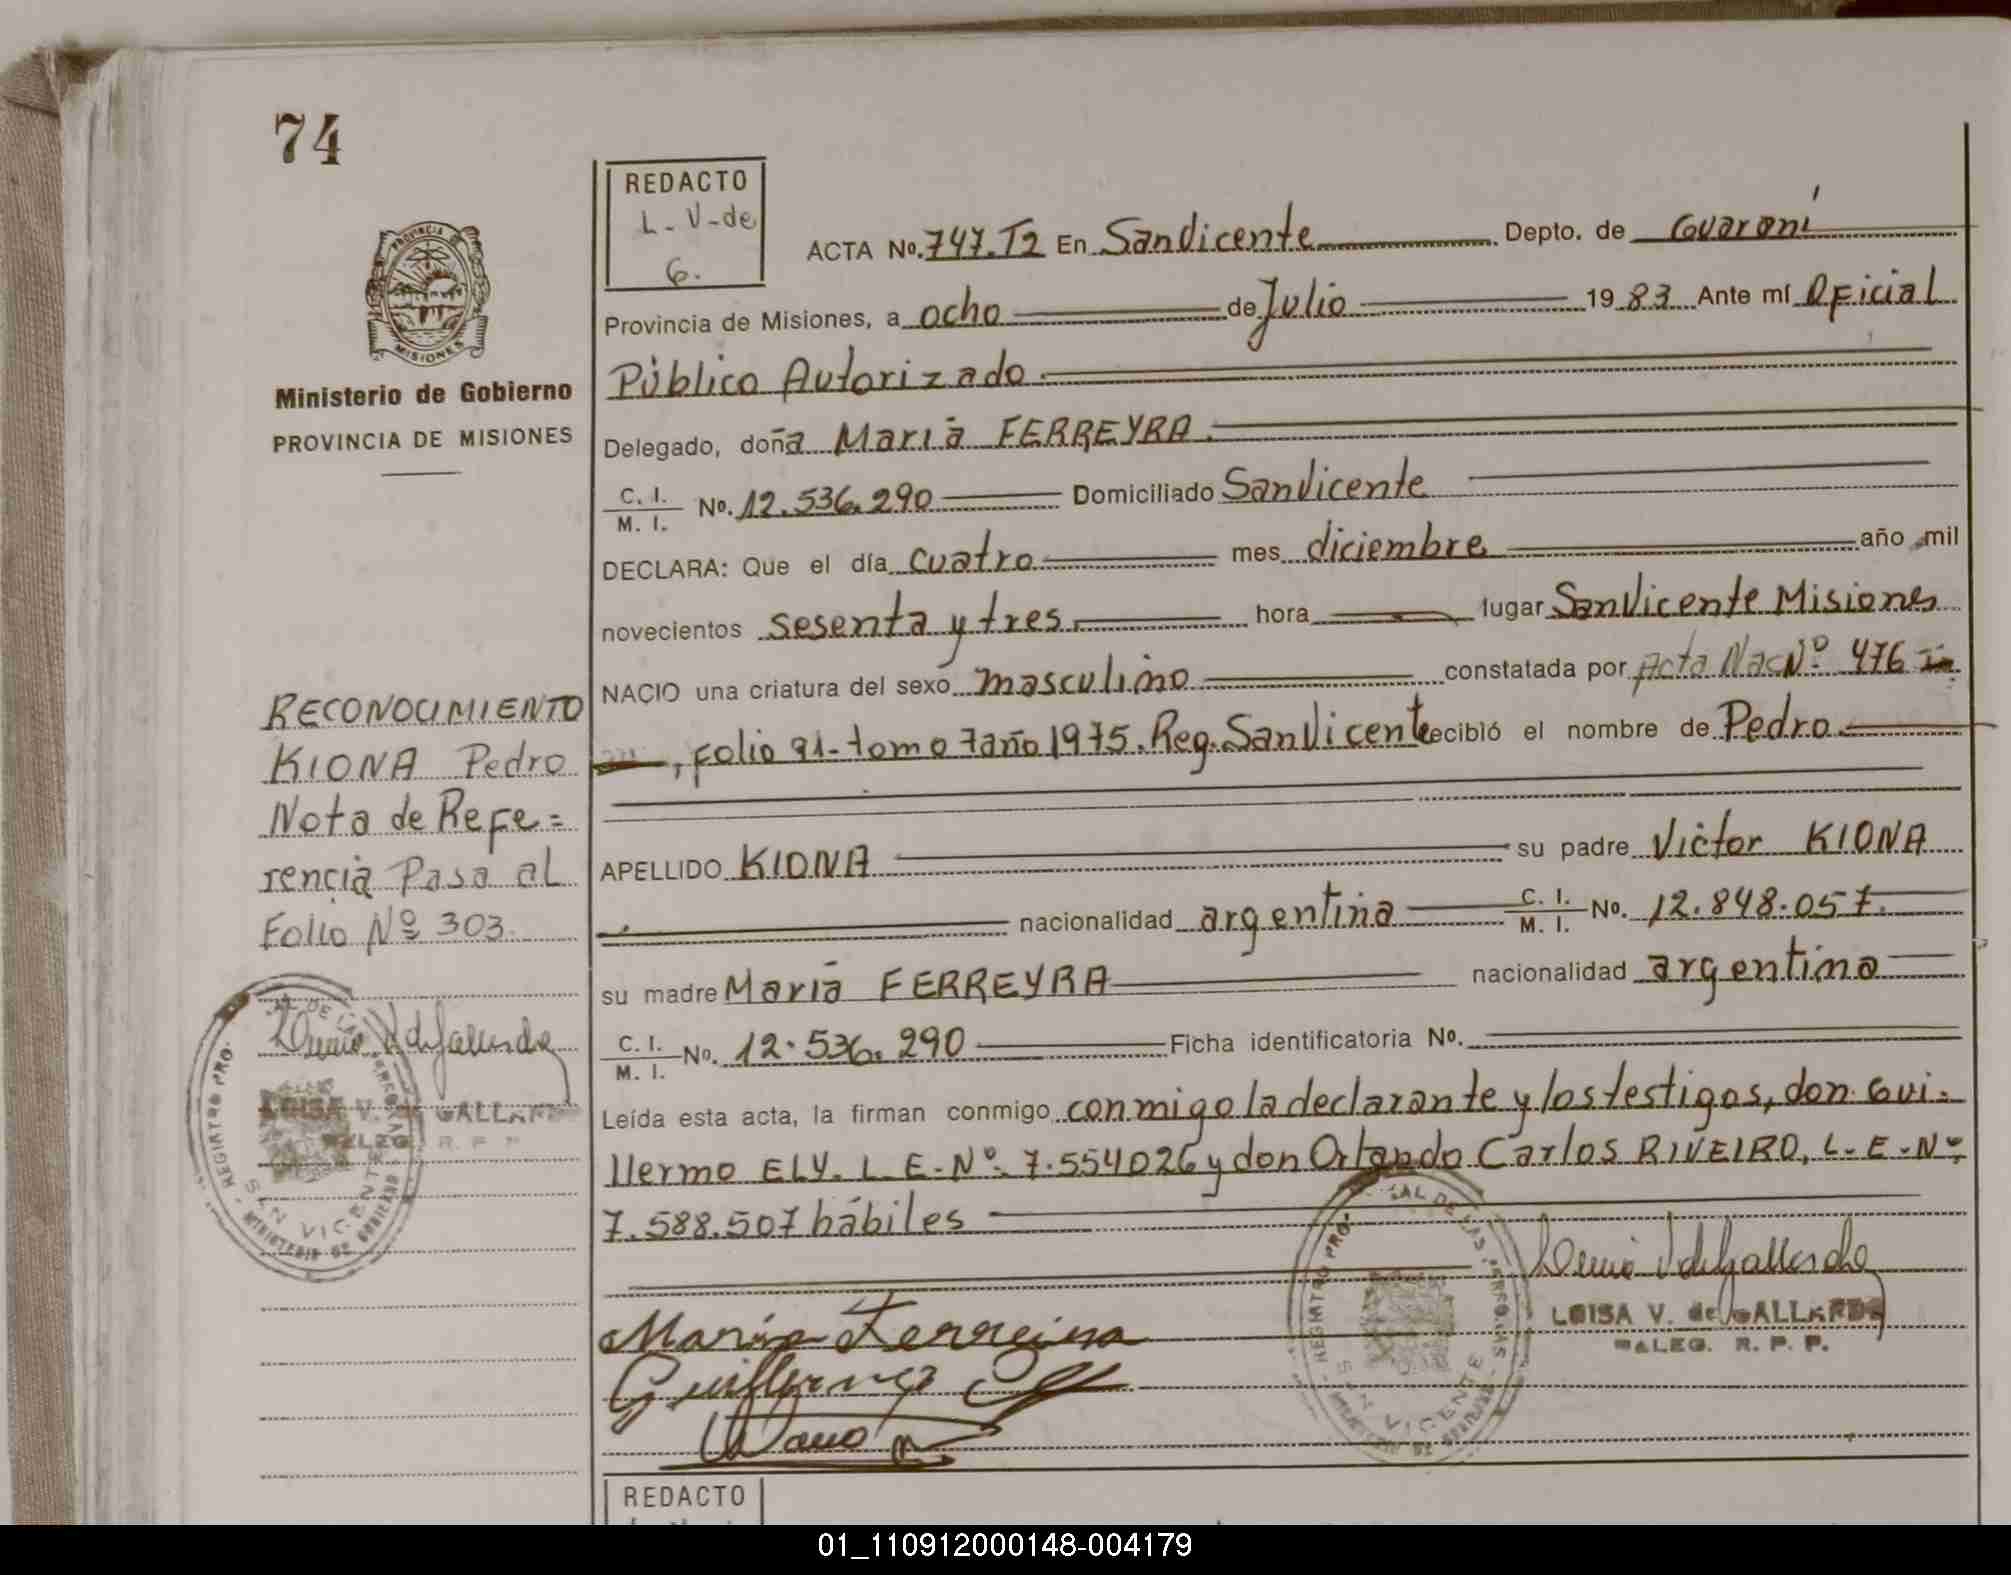 74
REDACTO
L-V-de
G.
PROVINCIA DE
MISIONES
Ministerio de Gobierno
PROVINCIA DE MISIONES
ACTA No. 747. T2 En SanVicente Depto. de Guaraní
Provincia de Misiones, a ocho de Julio 1983 Ante mí Oficial
Público Autorizado
Delegado, doña María FERREYRA
C. I.
M. I. No. 12.536.290 Domiciliado SanVicente
DECLARA: Que el día cuatro mes diciembre año mil
novecientos sesenta y tres hora lugar SanVicente Misiones
NACIO una criatura del sexo masculino constatada por Acta Nac Nº 476
, folio 91-tomo 7 año 1975. Reg. SanVicente recibló el nombre de Pedro
APELLIDO KIONA su padre Victor KIONA
nacionalidad argentina C. I.
M. I. No. 12.848.057.
su madre María FERREYRA nacionalidad argentina
C. I.
M. I. No. 12.536.290 Ficha identificatoria No.
Leída esta acta, la firman conmigo conmigo la declarante y los testigos, don Gui-
llermo ELY. L.E-Nº 7.554026 y don Orlando Carlos RIVEIRO, L-E-Nº
7.588.507 hábiles
RECONOCIMIENTO
KIONA Pedro
Nota de Refe=
rencia Pasa al
Folio Nº 303.
LUISA V. de GALLARDO
DELEG. R. P. P.
SAN VICENTE
María Ferreira
Guillermo
LUISA V. de GALLARDO
DELEG. R. P. P.
SAN VICENTE
REDACTO
01_110912000148-004179